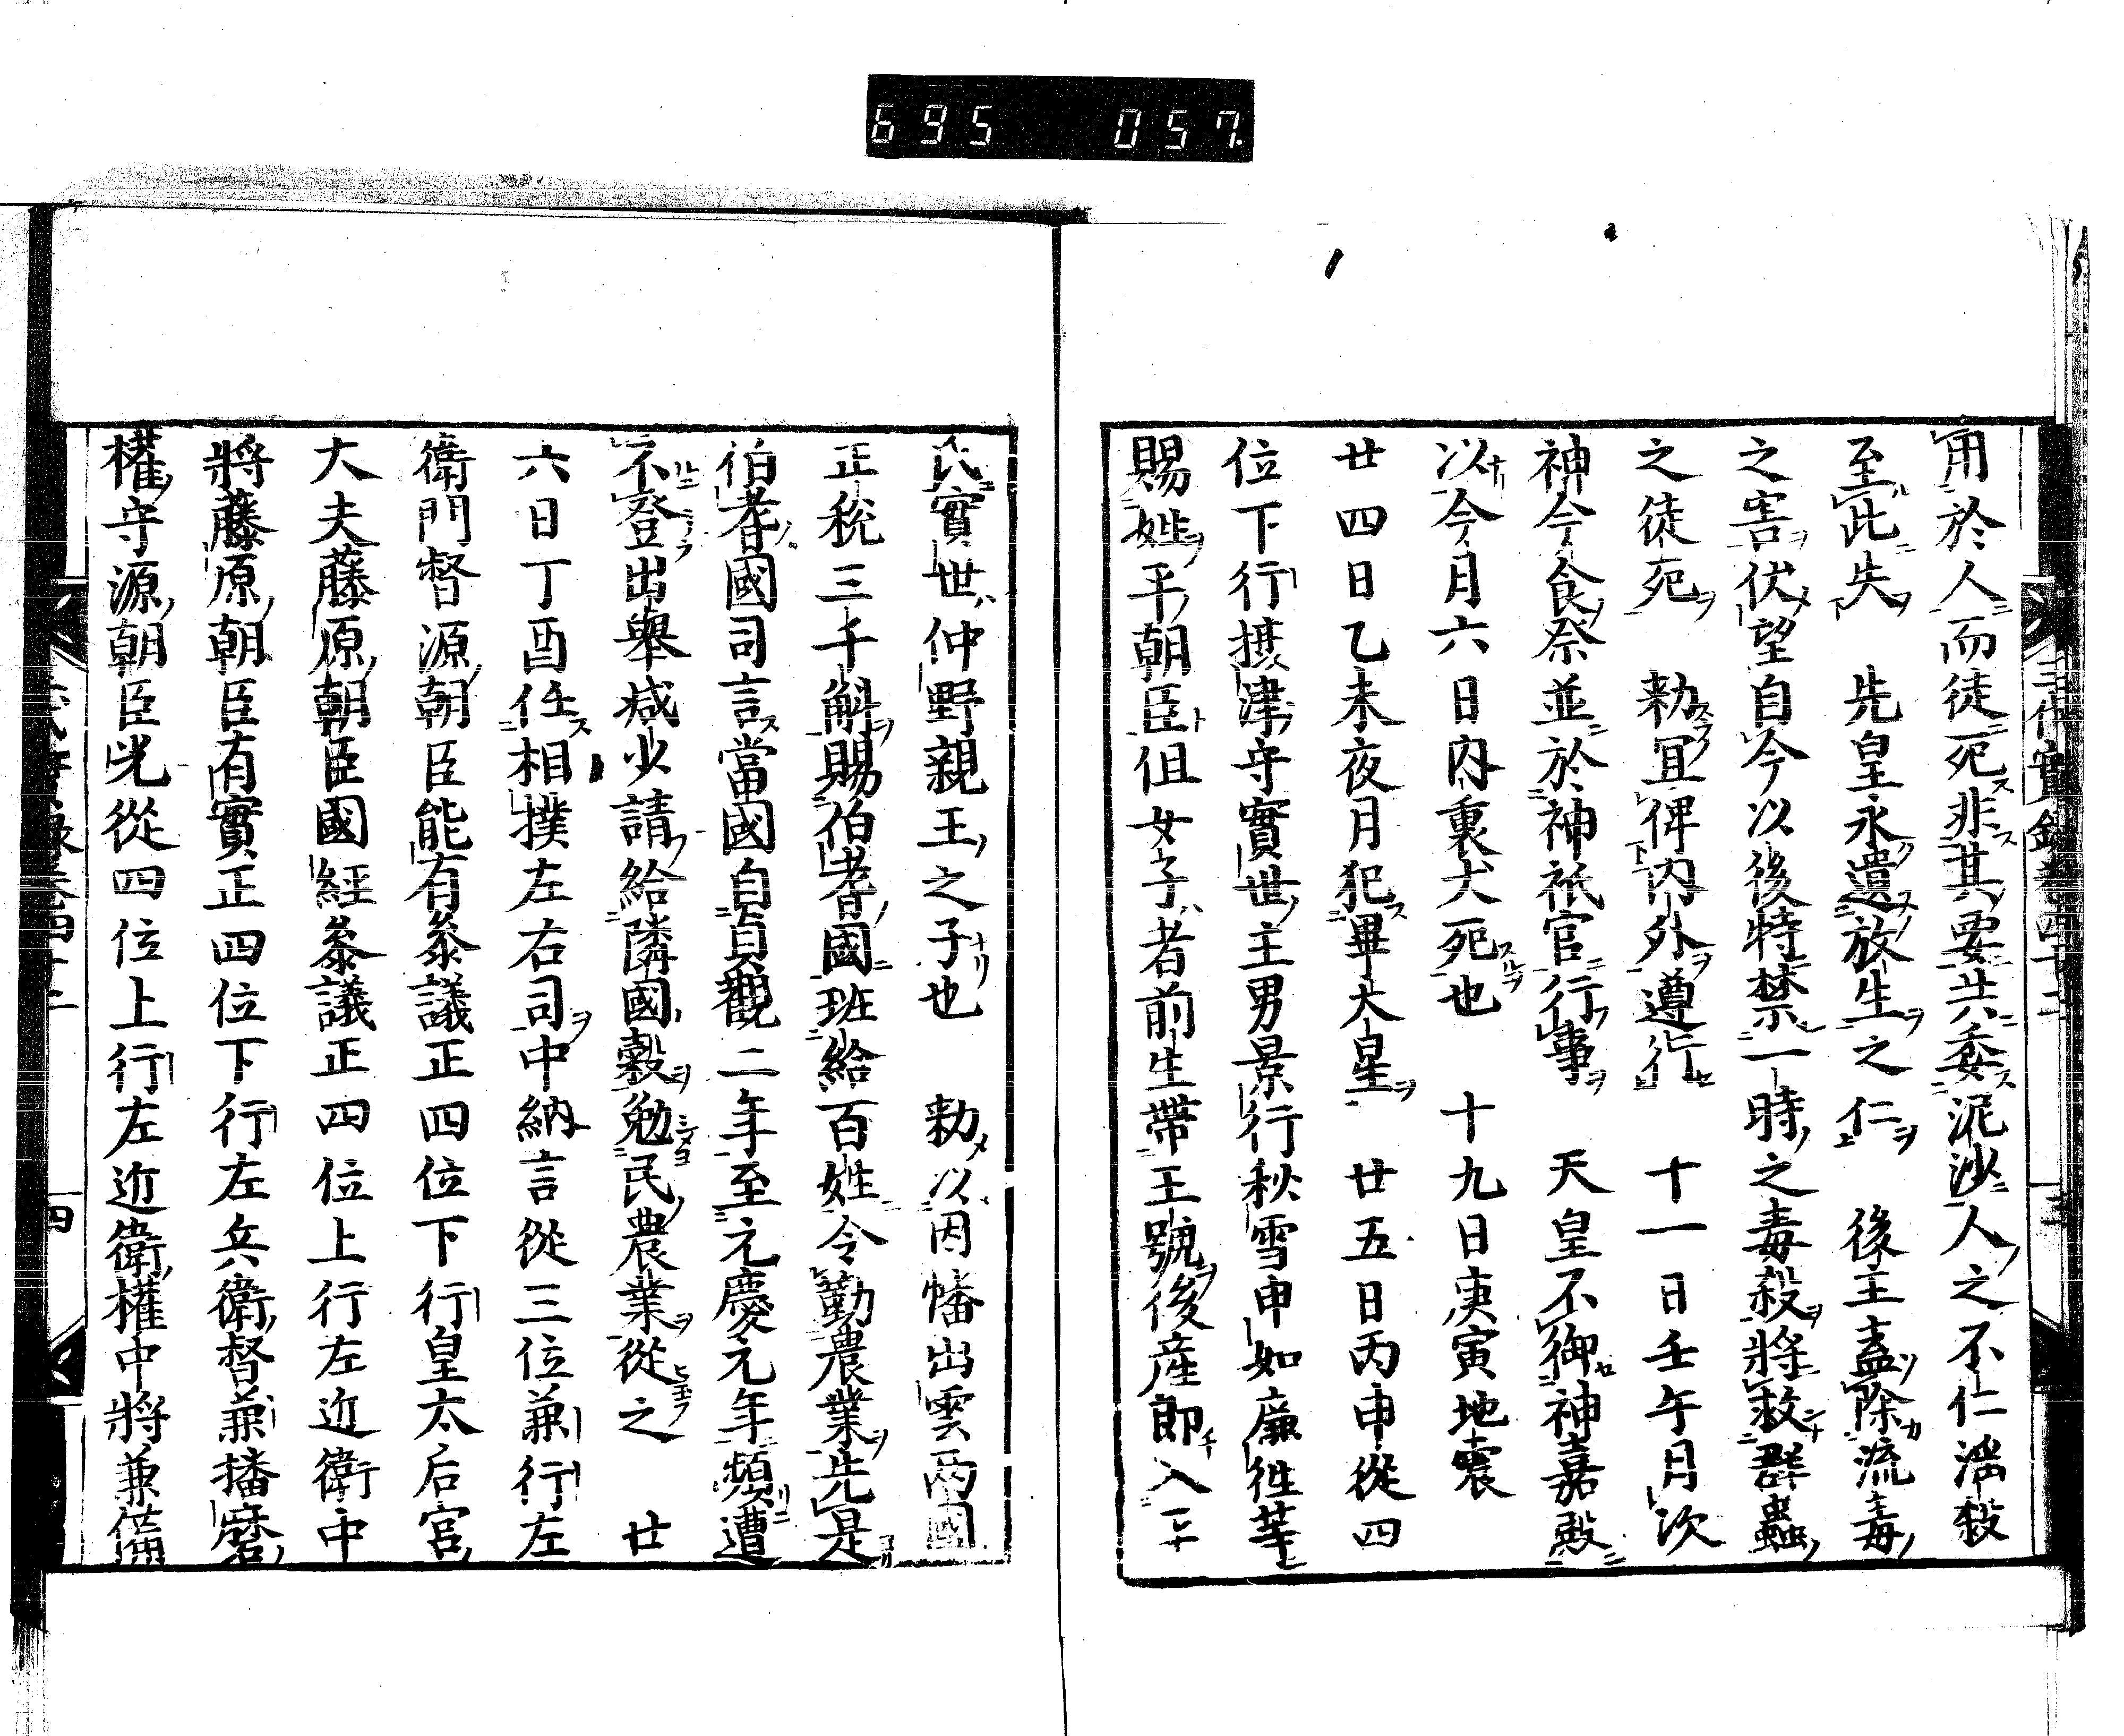 695 057.
用於人而徒死非其要共委泥沙人之不仁淫殺
至此失 先皇永遺放生之仁 後王盍除流毒
之害伏望自今以後特禁一時之毒殺將救群蟲
之徒死 勅宜俾内外遵行 十一日壬午月次
神今食祭並於神祇官行事 天皇不御神嘉殿
以今月六日内裏犬死也 十九日庚寅地震
廿四日乙未夜月犯畢大星 廿五日丙申從四
位下行攝津守實世王男景行秋雪申如廉徃莘
賜姓平朝臣但女子者前生帶王號後産即入平
氏實世仲野親王之子也 勅以因幡出雲兩國
正税三千斛賜伯耆國班給百姓令勤農業先是
伯耆國司言當國自貞觀二年至元慶元年頻遭
不登出舉減少請給隣國穀勉民農業從之 廿
六日丁酉任相撲左右司中納言從三位兼行左
衛門督源朝臣能有參議正四位下行皇太后宮
大夫藤原朝臣國經參議正四位上行左近衛中
將藤原朝臣有實正四位下行左兵衛督兼播磨
權守源朝臣光從四位上行左近衛權中將兼備